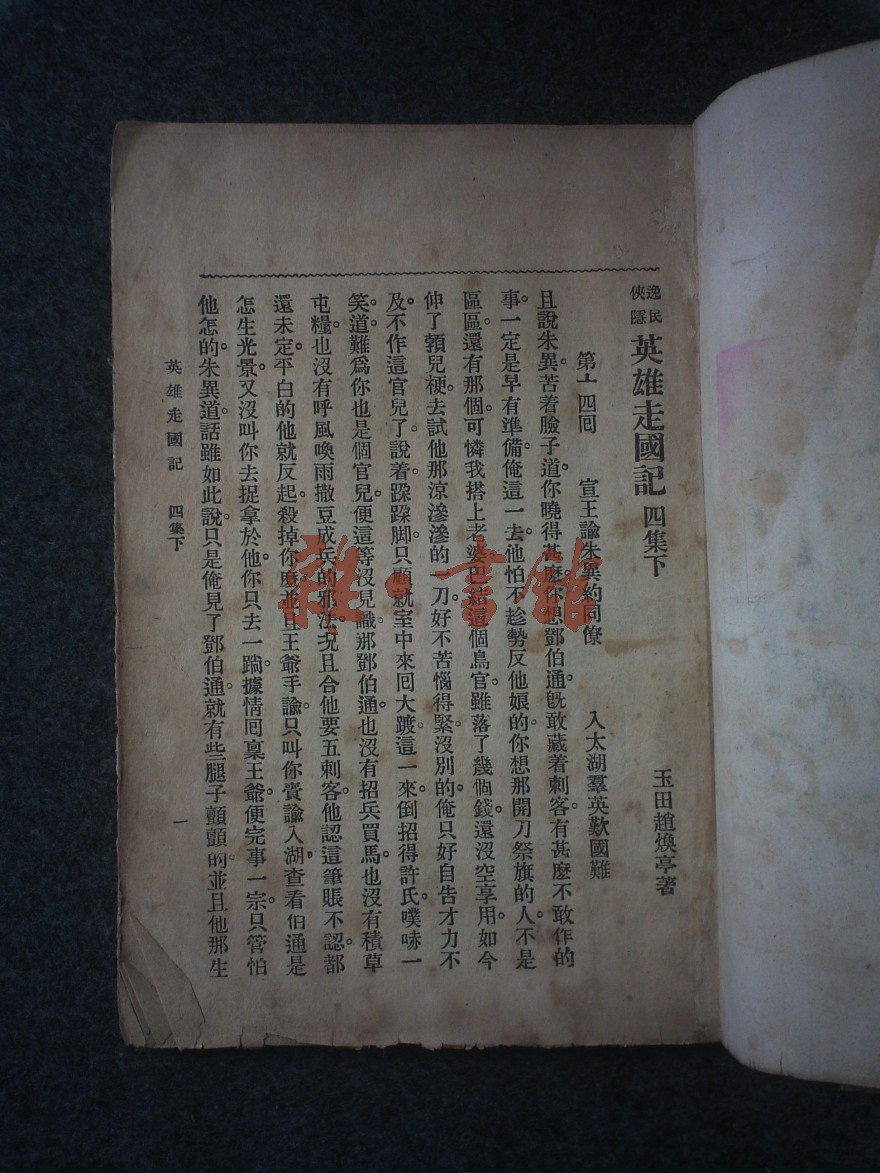 逸民俠隱
英雄走國記 四集下
玉田趙煥亭著
第十四回 宣王諭朱異約同僚 入太湖羣英歎國難
且說朱異苦着臉子道。你曉得甚麽。你想鄧伯通。旣敢藏着刺客。有甚麽不敢作的
事。一定是早有準備。俺這一去。他怕不趁勢反他娘的。你想那開刀祭旗的人。不是
區區。還有那個。可憐我搭上老婆。巴結這個鳥官。雖落了幾個錢。還沒空享用。如今
伸了頸兒梗。去試他那涼滲滲的一刀。好不苦惱得緊。沒別的。俺只好自告才力不
及。不作這官兒了。說着跺跺脚。只顧就室中來回大踱。這一來。倒招得許氏噗哧一
笑。道。難爲你也是個官兒。便這等沒見識。那鄧伯通也沒有招兵買馬。也沒有積草
屯糧。也沒有呼風喚雨撒豆成兵的邪法。况且合他要五刺客。他認這筆賬不認。都
還未定。平白的他就反起。殺掉你麽。並且王爺手諭。只叫你賫諭入湖。查看伯通是
怎生光景。又沒叫你去捉拿於他。你只去一蹚。據情回稟王爺。便完事一宗。只管怕
他怎的。朱異道。話雖如此說。只是俺見了鄧伯通。就有些腿子顫顫的。並且他那生
英雄走國記 四集下 一
雜·書館